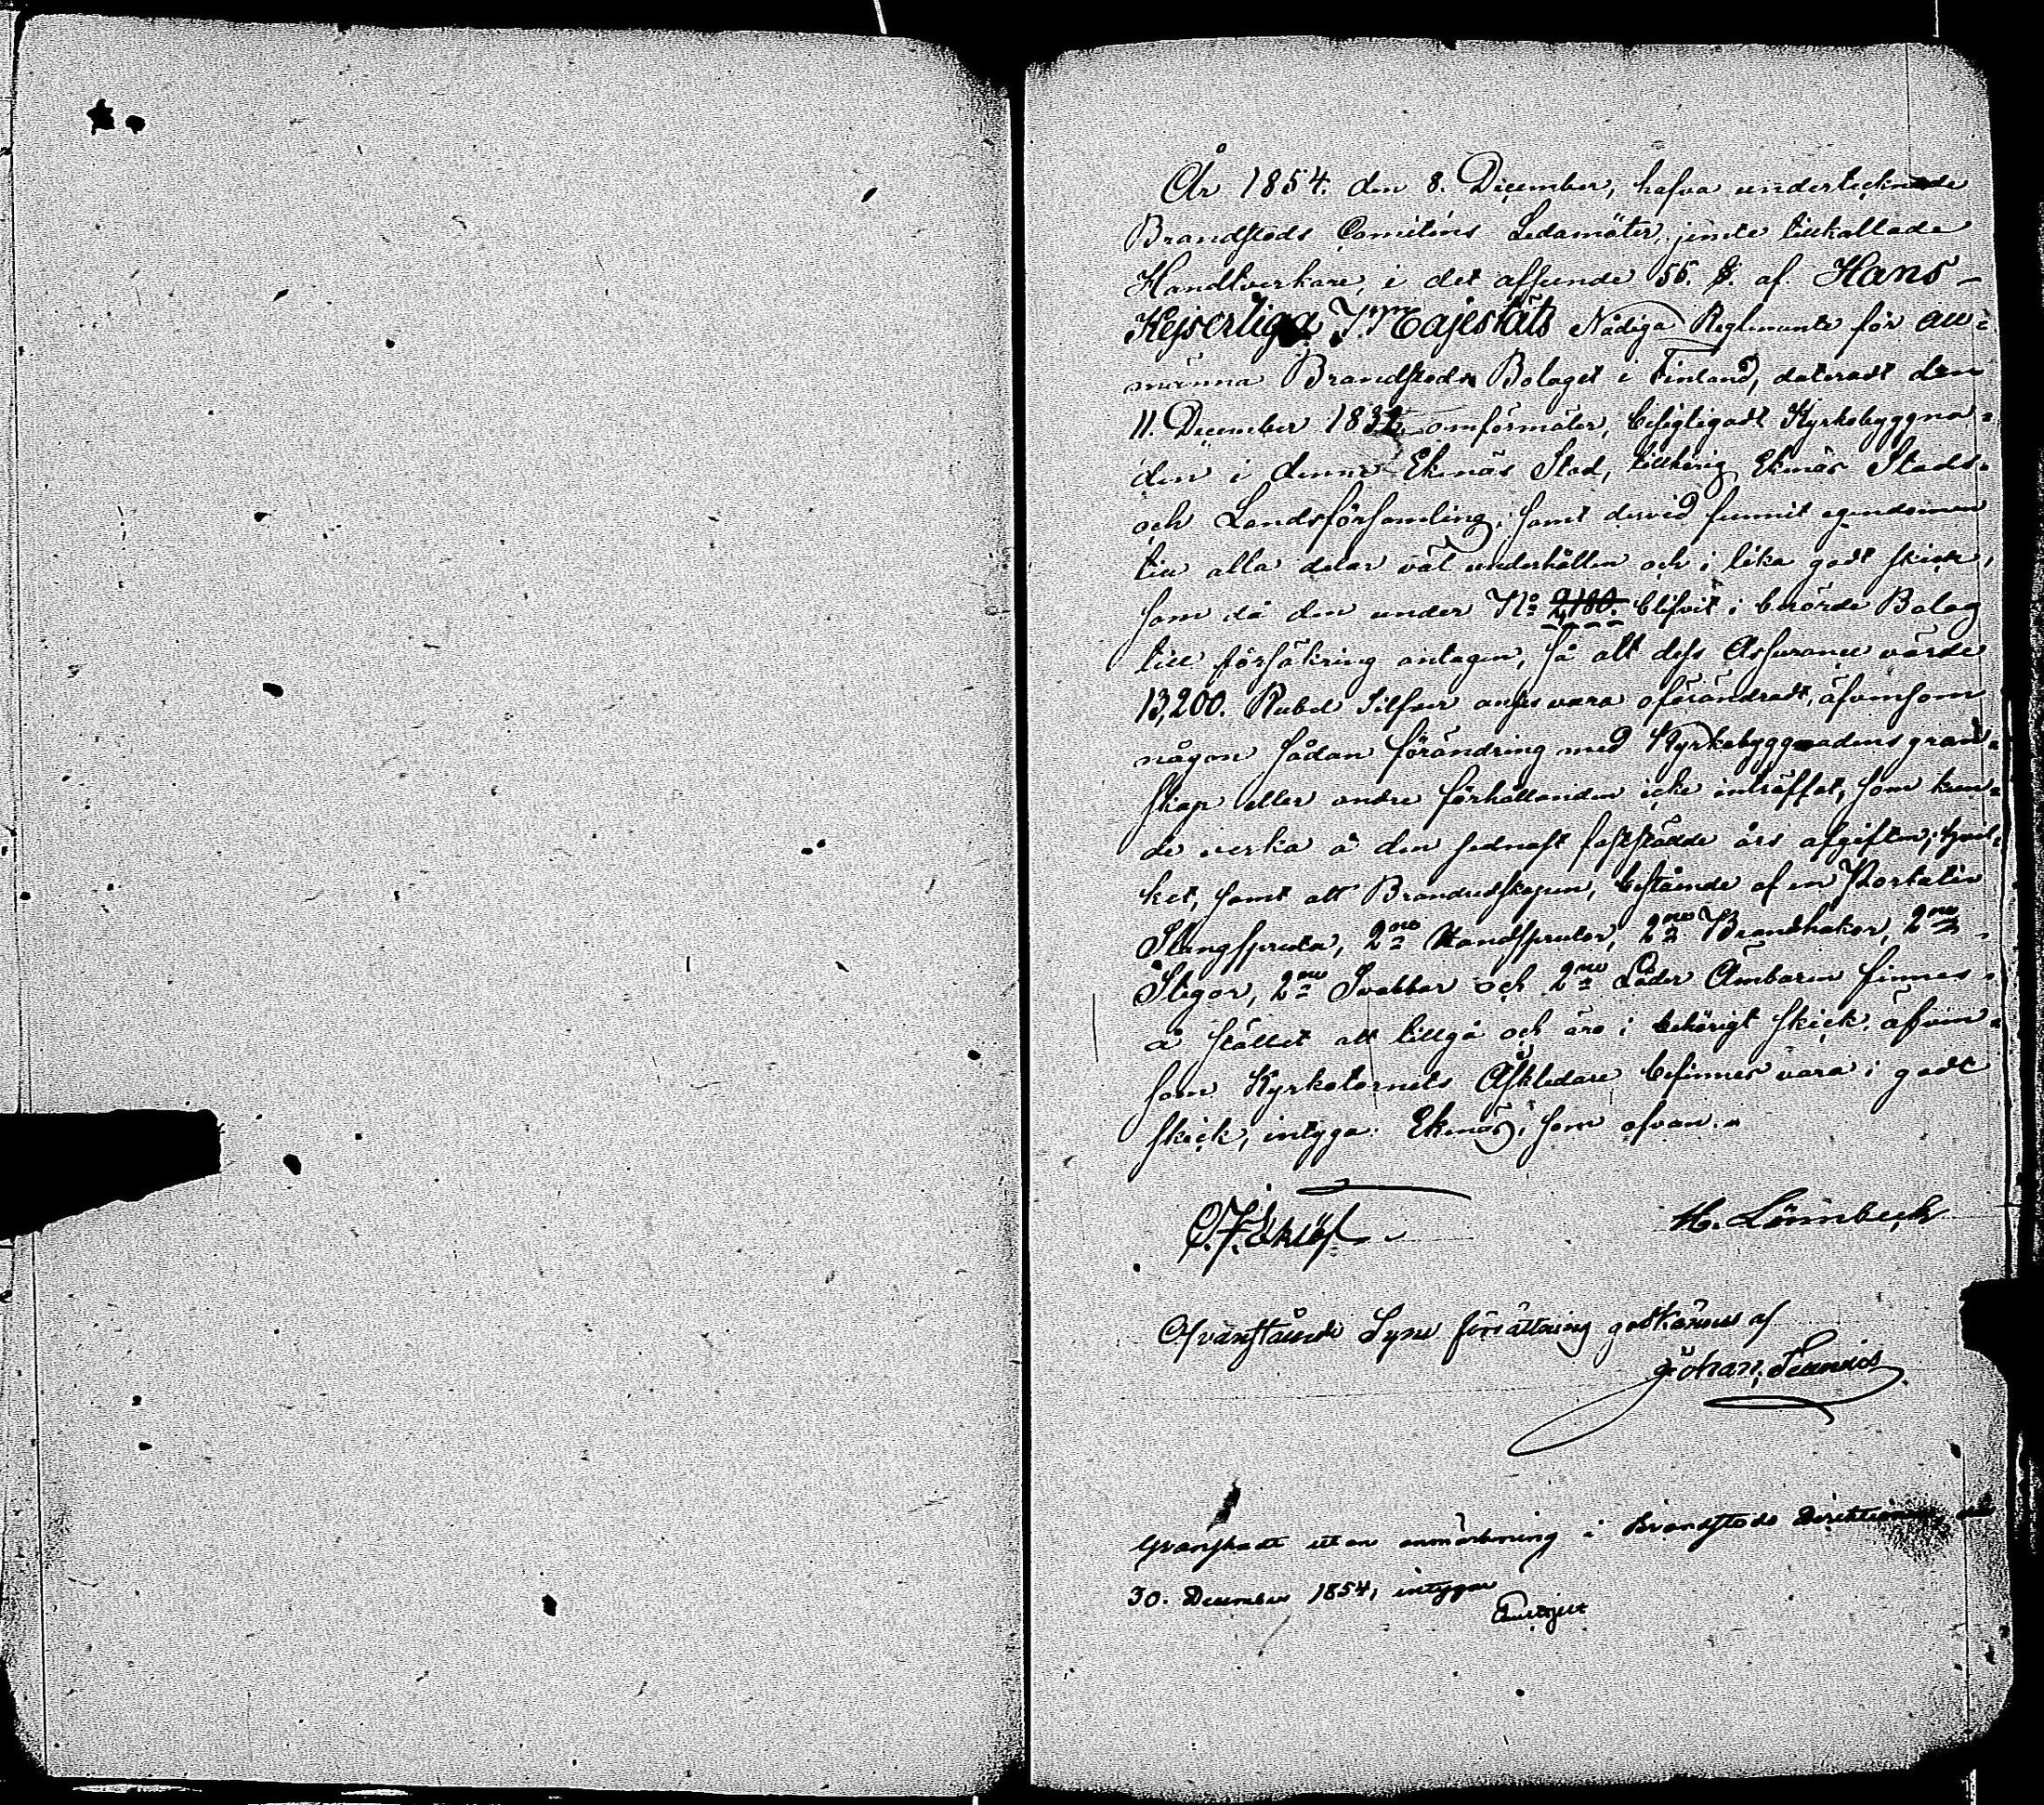 År 1854. den 8. December, hafva undertecknade
Brandstods Comiténs Ledamöter, jemte tillkallade
Handtverkare, i det afseende 55. §. af Hans
Kejserliga Majestäts Nådiga Reglemente för all-
männa Brandstods Bolaget i Finland, dateradt den
11. December 1832. omförmäler, besigtigadt Kyrkobyggna-
den i denna Ekenäs Stad, tillhörig Ekenäs Stads-
och Landsförsamling, samt dervid funnit egendomen
till alla delar väl underhållen och i lika godt skick,
som då den under No 2,180. blifvit i berörde Bolag
till försäkring antagen, så att dess Assurance värde
13,200. Rubel Silfver anses vara oförändradt, äfvensom
någon sådan förändring med Kyrkobyggnadens gran-
skap eller andra förhållanden icke inträffat, som kun-
de verka å den sednast fastställde års afgiften; hvil-
ket, samt att Brandredskapen, bestående af en Portativ
Slangspruta, 2ne Handsprutor, 2ne Brandhakar, 2ne
Stegar, 2ne Svabbar och 2ne Läder Ämbaren finnes
å stället att tillgå och äro i behörigt skick, äfven-
som Kyrkotornets Åskledare befinnes vara i godt
skick, intyga. Ekenäs, som ofvan.
C. F. Eklöf
H. Lönnbeck
Ofvanstående Syne förrättning godkännes af
Johan
Granskadt utan anmärkning i Brandstods Direktionen, den
30. December 1854, intygar